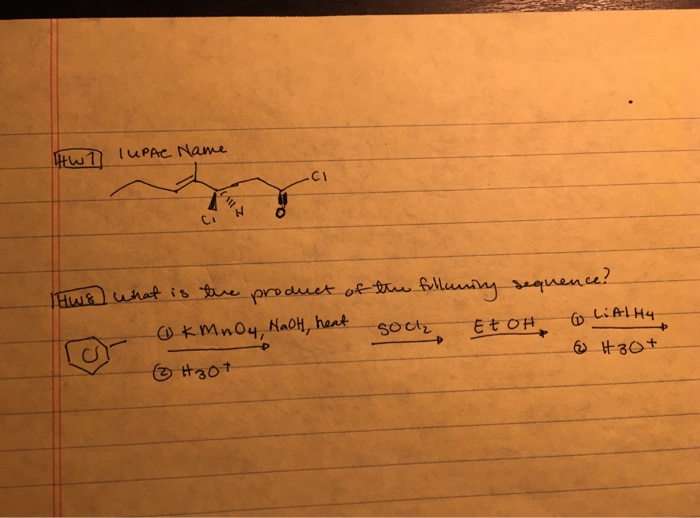 HW7 IUPAC Name
Cl
Cl H O
HW8 What is the product of the following sequence?
① KMnO4, NaOH, heat SOCl2 EtOH ① LiAlH4
② H3O+ ② H3O+